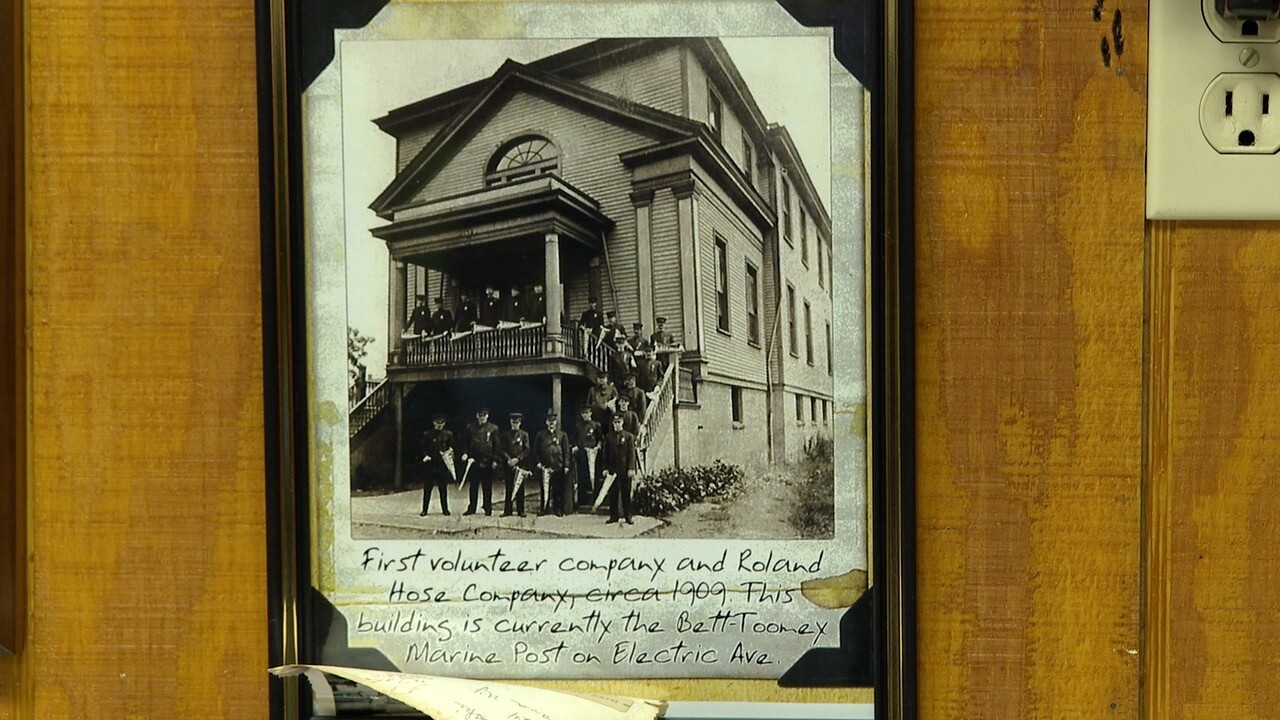 First volunteer company and Roland
Hose Company, circa 1909. This
building is currently the Bett-Toomey
Marine Post on Electric Ave.